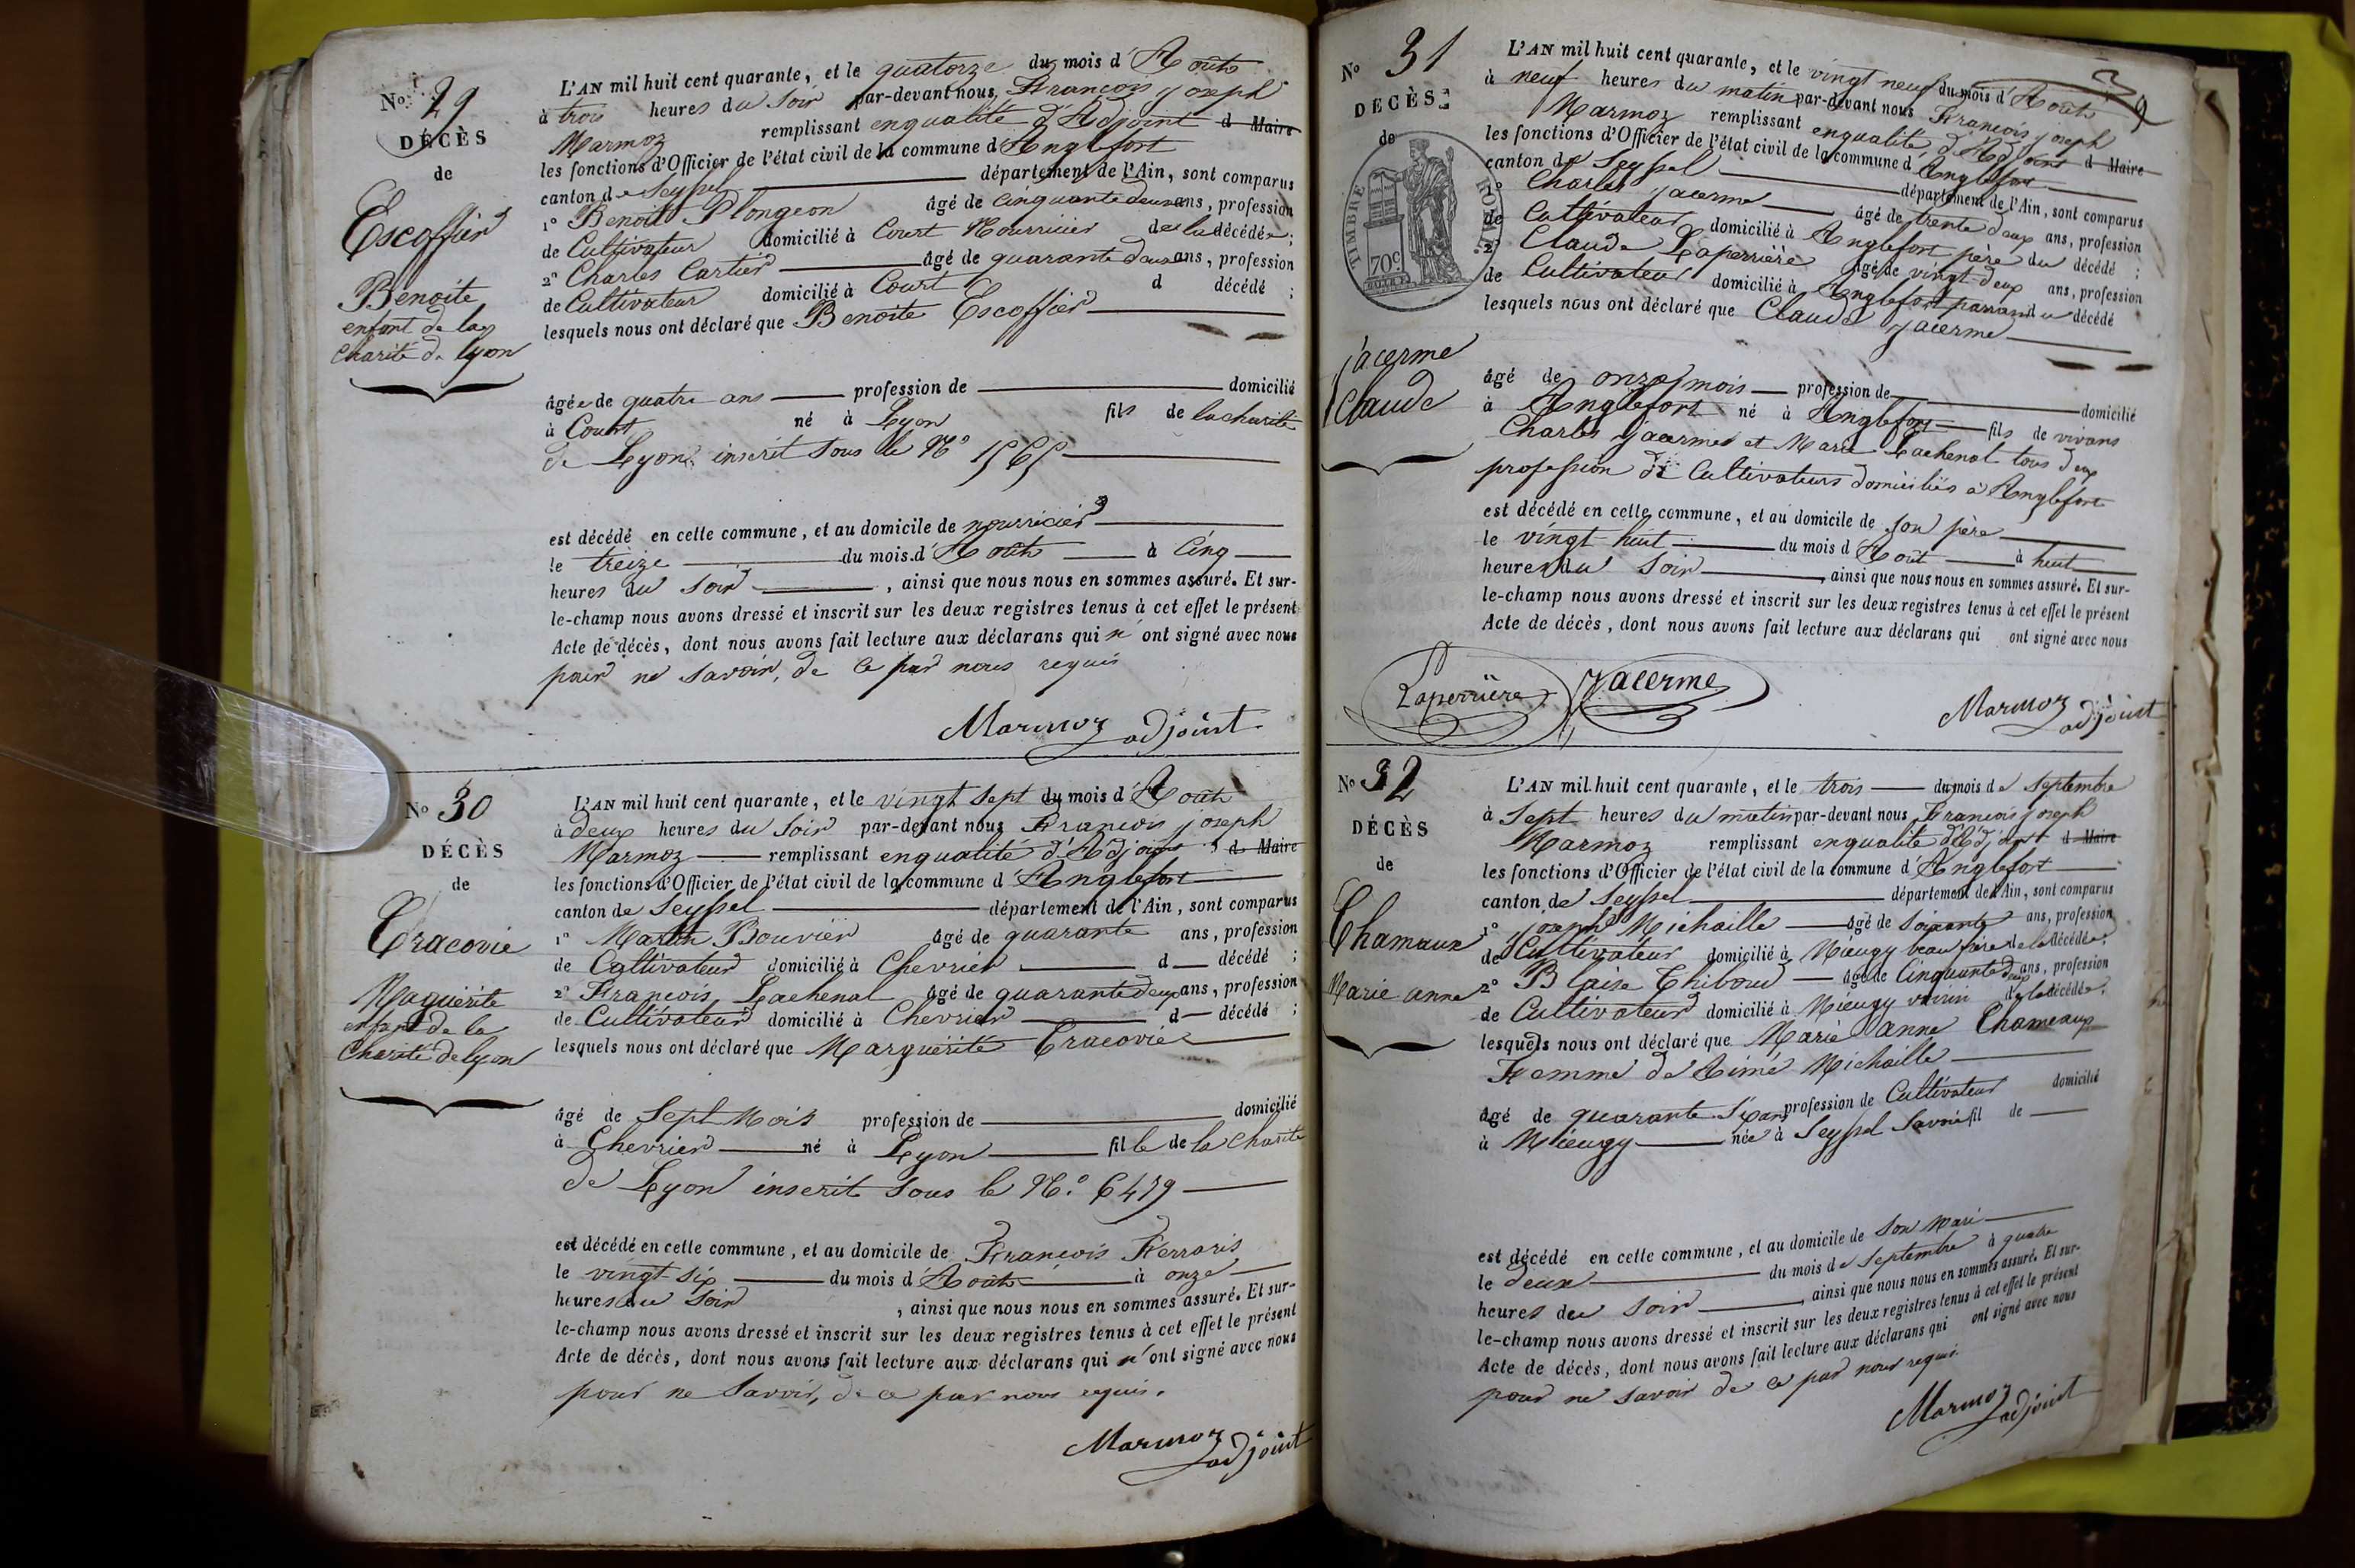 N° 29
DÉCÈS
de
Escoffier
Benoite
enfant de la
Charité de Lyon
L'AN mil huit cent quarante, et le quatorze du mois d'Août
à trois heures du soir par-devant nous, François joseph
Marmoz remplissant en qualité d'Adjoint d Maire
les fonctions d'Officier de l'état civil de la commune d'Anglefort
canton de Seyssel département de l'Ain, sont comparus
1° Benoit Plongeon âgé de cinquante deux ans, profession
de Cultivateur domicilié à Court Nourricier de la décédée;
2° Charles Cartier âgé de quarante deux ans, profession
de Cultivateur domicilié à Court d décédé ;
lesquels nous ont déclaré que Benoite Escoffier
âgée de quatre ans profession de domicilié
à Court né à Lyon fils de la charité
de Lyon, inscrit sous le N°
est décédé en cette commune, et au domicile de nourricier
le treize du mois d'Août à cinq
heures du soir , ainsi que nous nous en sommes assuré. Et sur-
le-champ nous avons dressé et inscrit sur les deux registres tenus à cet effet le présent
Acte de décès, dont nous avons fait lecture aux déclarans qui n'ont signé avec nous
pour ne savoir, de ce par nous requis
Marmoz adjoint
N° 30
DÉCÈS
de
Cracovie
Maguerite
enfant de la
Charité de Lyon
L'AN mil huit cent quarante, et le vingt sept du mois d'Août
à deux heures du soir par-devant nous François joseph
Marmoz remplissant en qualité d'Adjoint d Maire
les fonctions d'Officier de l'état civil de la commune d'Anglefort
canton de Seyssel département de l'Ain, sont comparus
1° Martin Bouvier âgé de quarante ans, profession
de Cultivateur domicilié à Chevrier d décédé ;
2° François Lachenal âgé de quarante deux ans, profession
de Cultivateur domicilié à Chevrier d décédé ;
lesquels nous ont déclaré que Marguerite Cracovie
âgé de Sept Mois profession de domicilié
à Chevrier né à Lyon fille de la Charité
de Lyon inscrit sous le N°. 6479
est décédé en cette commune, et au domicile de François Ferraris
le vingt six du mois d'Août à onze
heures du soir , ainsi que nous nous en sommes assuré. Et sur-
le-champ nous avons dressé et inscrit sur les deux registres tenus à cet effet le présent
Acte de décès, dont nous avons fait lecture aux déclarans qui n'ont signé avec nous
pour ne savoir, de ce par nous requis.
Marmoz adjoint
N° 31
DÉCÈS
de
TIMBRE ROYAL
70c
jacerme
Claude
L'AN mil huit cent quarante, et le vingt neuf du mois d'Août
à neuf heures du matin par-devant nous François joseph
Marmoz remplissant en qualité d'Adjoint d Maire
les fonctions d'Officier de l'état civil de la commune d'Anglefort
canton de Seyssel département de l'Ain, sont comparus
1° Charles jacerme âgé de trente deux ans, profession
de Cultivateur domicilié à Anglefort père du décédé ;
2° Claude Laperrière âgé de vingt deux ans, profession
de Cultivateur domicilié à Anglefort parrain du décédé
lesquels nous ont déclaré que Claude jacerme
âgé de onze mois profession de domicilié
à Anglefort né à Anglefort fils de vivans
Charles jacerme et Marie Lachenal tous deux
profession de Cultivateurs domiciliés à Anglefort
est décédé en cette commune, et au domicile de son père
le vingt huit du mois d'Août à huit
heures du soir , ainsi que nous nous en sommes assuré. Et sur-
le-champ nous avons dressé et inscrit sur les deux registres tenus à cet effet le présent
Acte de décès, dont nous avons fait lecture aux déclarans qui ont signé avec nous
Laperrière Jacerme Marmoz adjoint
N° 32
DÉCÈS
de
Chamaux
Marie anne
L'AN mil huit cent quarante, et le trois du mois de septembre
à Sept heures du matin par-devant nous, François joseph
Marmoz remplissant en qualité d'Adjoint d Maire
les fonctions d'Officier de l'état civil de la commune d'Anglefort
canton de Seyssel département de l'Ain, sont comparus
1° joseph Michaille âgé de soixante ans, profession
de Cultivateur domicilié à Mieugy beau frère de la décédée;
2° Blaise Thiboud âgé de cinquante deux ans, profession
de Cultivateur domicilié à Mieugy voisin de la décédée;
lesquels nous ont déclaré que Marie anne Chameaux
Femme de Aimé Michaille
âgé de quarante six ans profession de Cultivateur domicilié
à Mieugy née à Seyssel Savoie fil de
est décédé en cette commune, et au domicile de son Mari
le deux du mois de septembre à quatre
heures du soir , ainsi que nous nous en sommes assuré. Et sur-
le-champ nous avons dressé et inscrit sur les deux registres tenus à cet effet le présent
Acte de décès, dont nous avons fait lecture aux déclarans qui ont signé avec nous
pour ne savoir de ce par nous requis
Marmoz adjoint